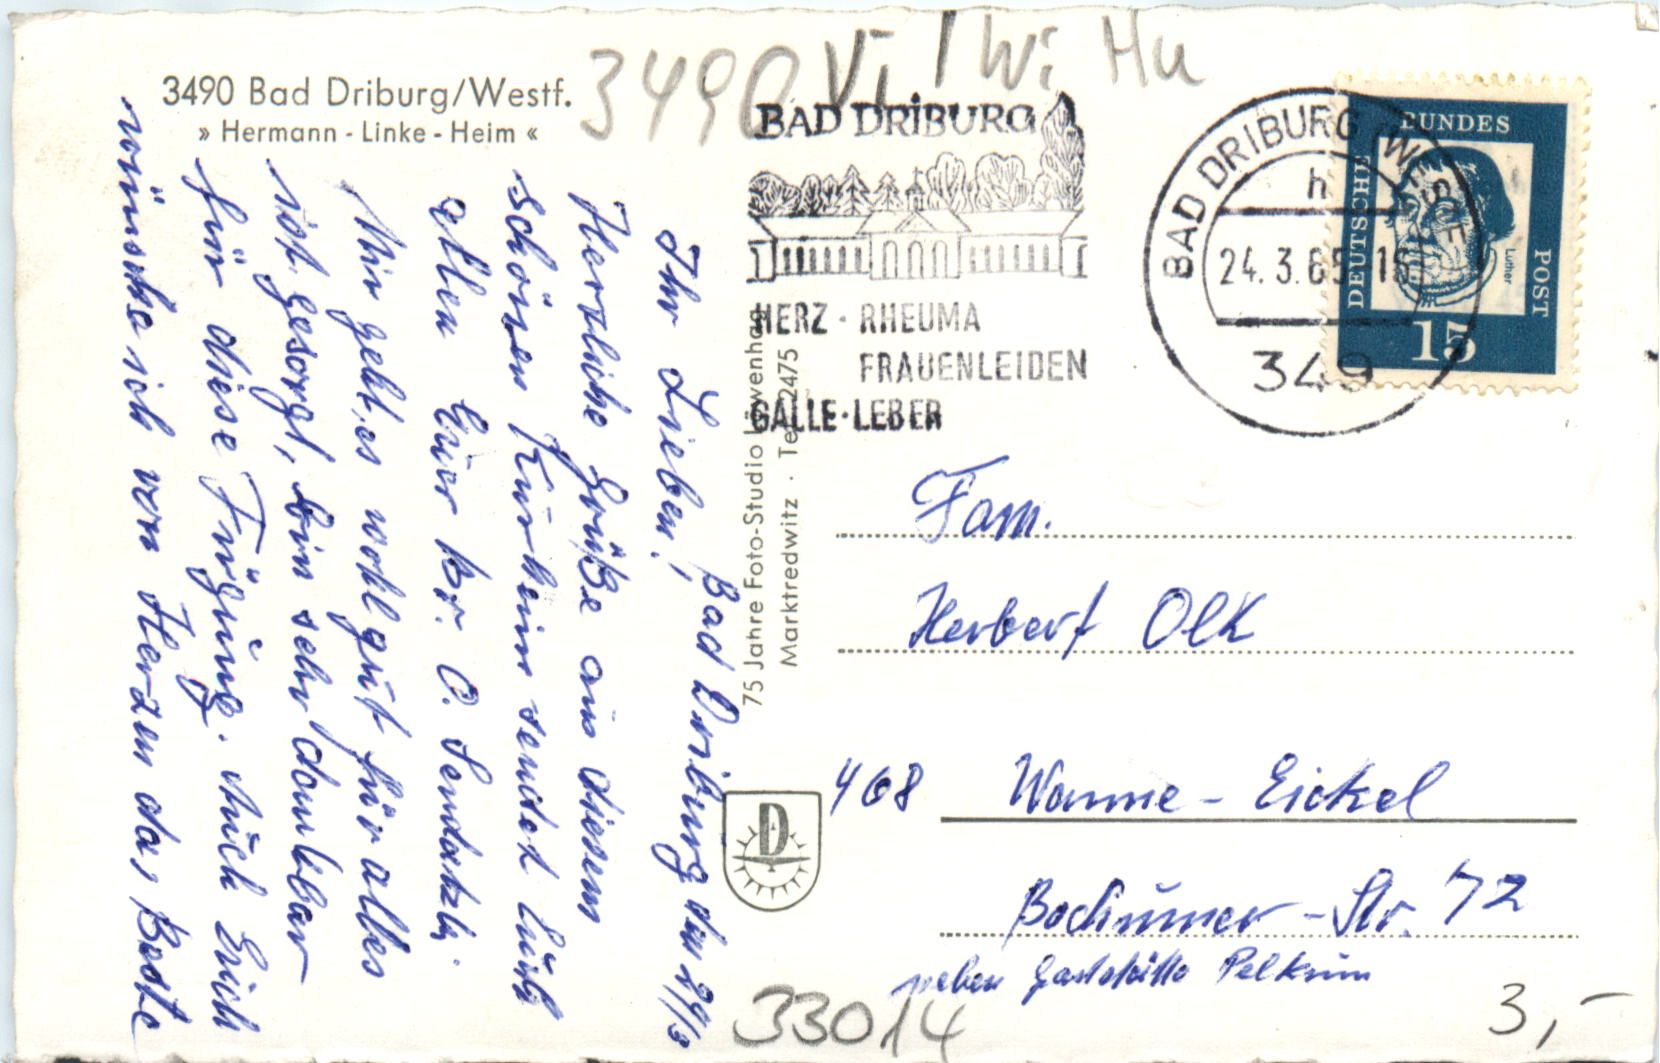 3490 Bad Driburg/Westf.
» Hermann - Linke - Heim «
3490 Vi / Wi Hu
BAD DRIBURG
HERZ · RHEUMA
FRAUENLEIDEN
GALLE · LEBER
BAD DRIBURG (WESTF)
h
24. 3. 65
349
DEUTSCHE
BUNDES
POST
Luther
15
Bad Driburg den 24/3
Ihr Lieben!
Herzliche Grüße aus diesem
schönen Kurheim sendet Euch
allen Euer br. O.
Mir geht es wohl gut für alles
ist gesorgt, bin sehr dankbar
für diese Fügung. Auch Euch
wünsche ich von Herzen das Beste
75 Jahre Foto-Studio Löwenhag
Marktredwitz · Tel. 2475
D
Fam.
Herbert Olk
468 Wanne-Eickel
Bochumer-Str. 72
neben Gaststätte Pelkum
33014
3,-